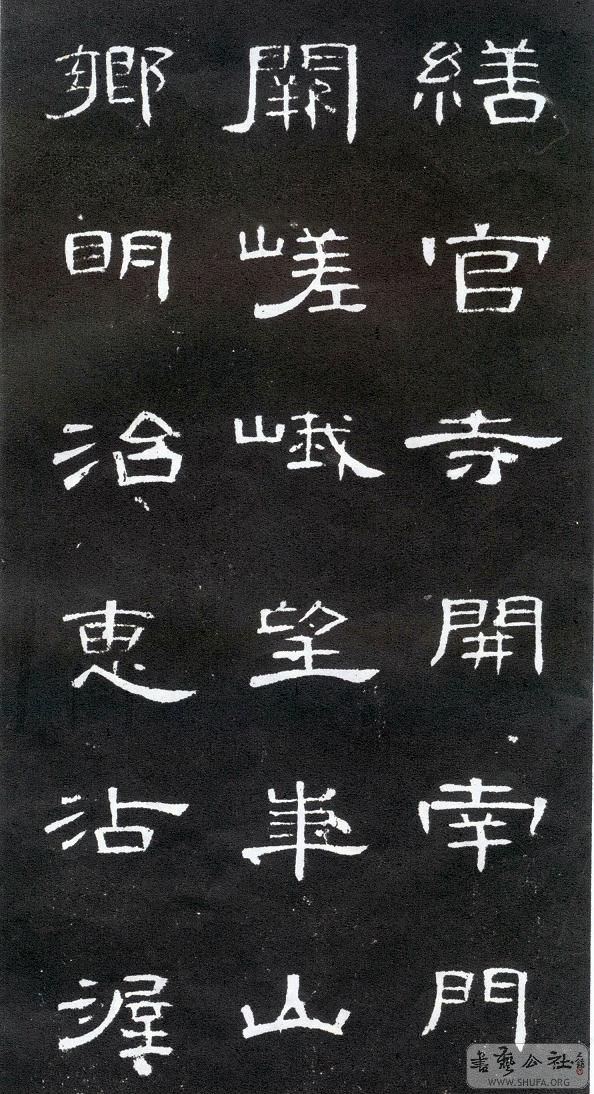 繕官寺開南門
闕嵯峨望華山
鄉明治惠沾渥
書藝公社
WWW.SHUFA.ORG